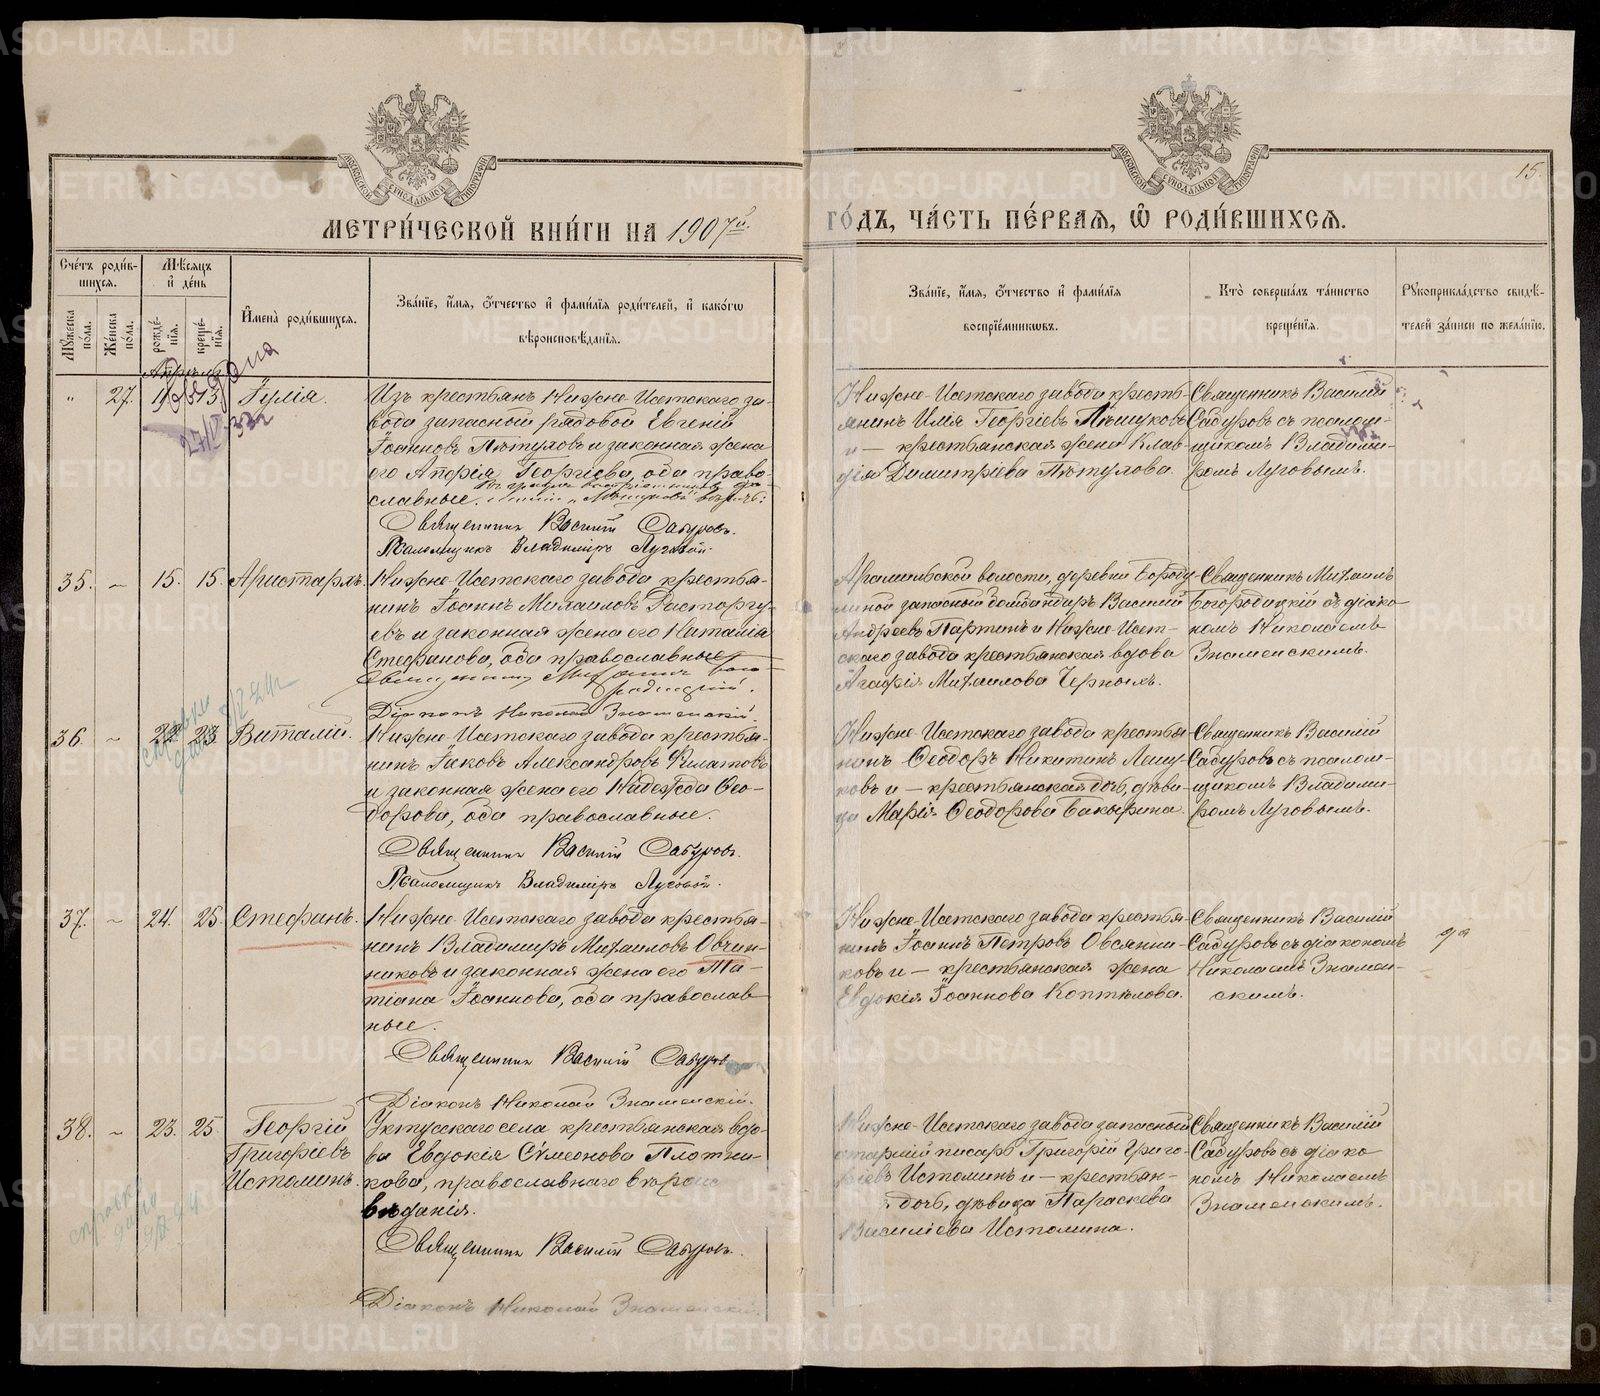 МЕТРИ́ЧЕСКОЙ КНИ́ГИ НА 1907й.
ГО́ДЪ, ЧА́СТЬ ПЕ́РВАЯ, Ѡ РОДИ́ВШИХСЯ.
15.
Сче́тъ роди́в-
шихся.
Мѣ́сяцъ
и҆ де́нь
Мꙋ́жеска
по́ла.
Же́нска
по́ла.
рожде́-
нія.
креще́-
нія.
И҆мена̀ роди́вшихся.
Зва́нїе, и҆́мя, ѻ҆́тчество и҆ фами́лїя роди́телей, и҆ како́гѡ
вѣроисповѣ́данїя.
Зва́нїе, и҆́мя, ѻ҆́тчество и҆ фами́лїя
воспрїе́мникѡвъ.
Кто̀ соверша́лъ та́инство
креще́нїя.
Рꙋкоприкла́дство свидѣ́-
телей за́писи по жела́нїю.
Апрѣль
" 27. 13. Іулія.
Изъ крестьянъ Нижне-Исетскаго за-
вода запасной рядовой Евгеній
Іоанновъ Пѣтуховъ и законная жена
его Георгіева, оба право-
славные.
Священникъ Василій Сабуровъ.
Псаломщикъ Владиміръ Луговой.
Нижне-Исетскаго завода кресть-
янинъ Илія Георгіевъ
и — крестьянская жена Клав-
дія Димитріева Пѣтухова.
Священникъ Василій
Сабуровъ съ псалом-
щикомъ Владимі-
ромъ Луговымъ.
35. — 15. 15. Аристархъ.
Нижне-Исетскаго завода крестья-
нинъ Іоаннъ Михаиловъ Расторгу-
евъ и законная жена его Наталія
Стефанова, оба православные
Священникъ Михаилъ Бого-
родицкій.
Діаконъ Николай Знаменскій.
Арамильской волости, деревни Бороду-
линой запасной бомбандиръ Василій
Андреевъ Партинъ и Нижне-Исет-
скаго завода крестьянская вдова
Агафія Михаилова Черныхъ.
Священникъ Михаилъ
Богородицкій съ діако-
номъ Николаемъ
Знаменскимъ.
36. — 22. 23. Виталій.
Нижне-Исетскаго завода крестья-
нинъ Іаковъ Александровъ Филатовъ
и законная жена его Надежда Ѳео-
дорова, оба православные.
Священникъ Василій Сабуровъ.
Псаломщикъ Владиміръ Луговой.
Нижне-Исетскаго завода крестья-
нинъ Ѳеодоръ Никитинъ
и — крестьянская дочь, дѣви-
ца Марія Ѳеодорова Бакырина.
Священникъ Василій
Сабуровъ съ псалом-
щикомъ Владимі-
ромъ Луговымъ.
37. — 24. 25. Стефанъ.
Нижне-Исетскаго завода крестья-
нинъ Владимиръ Михаиловъ Овчин-
никовъ и законная жена его Та-
тіана Іоаннова, оба православ
ные.
Священникъ Василій Сабуровъ
Діаконъ Николай Знаменскій.
Нижне-Исетскаго завода крестья-
нинъ Іоаннъ Петровъ Овсянни-
ковъ и — крестьянская жена
Евдокія Іоаннова Коптѣлова.
Священникъ Василій
Сабуровъ съ діакономъ
Николаемъ Знамен-
скимъ.
да
38. — 23. 25. Георгій
Григоріевъ
Истоминъ.
Уктусскаго села крестьянская вдо-
ва Евдокія Сѵмеонова Плотни-
кова, православнаго вѣроис
вѣданія.
Священникъ Василій Сабуровъ.
Діаконъ Николай Знаменскій.
Нижне-Исетскаго завода запасной
старшій писарь Григорій Григо-
ріевъ Истоминъ и — крестьян-
дочь, дѣвица Параскева
Василіева Истомина.
Священникъ Василій
Сабуровъ съ діако
номъ Николаемъ
Знаменскимъ.
METRIKI.GASO-URAL.RU